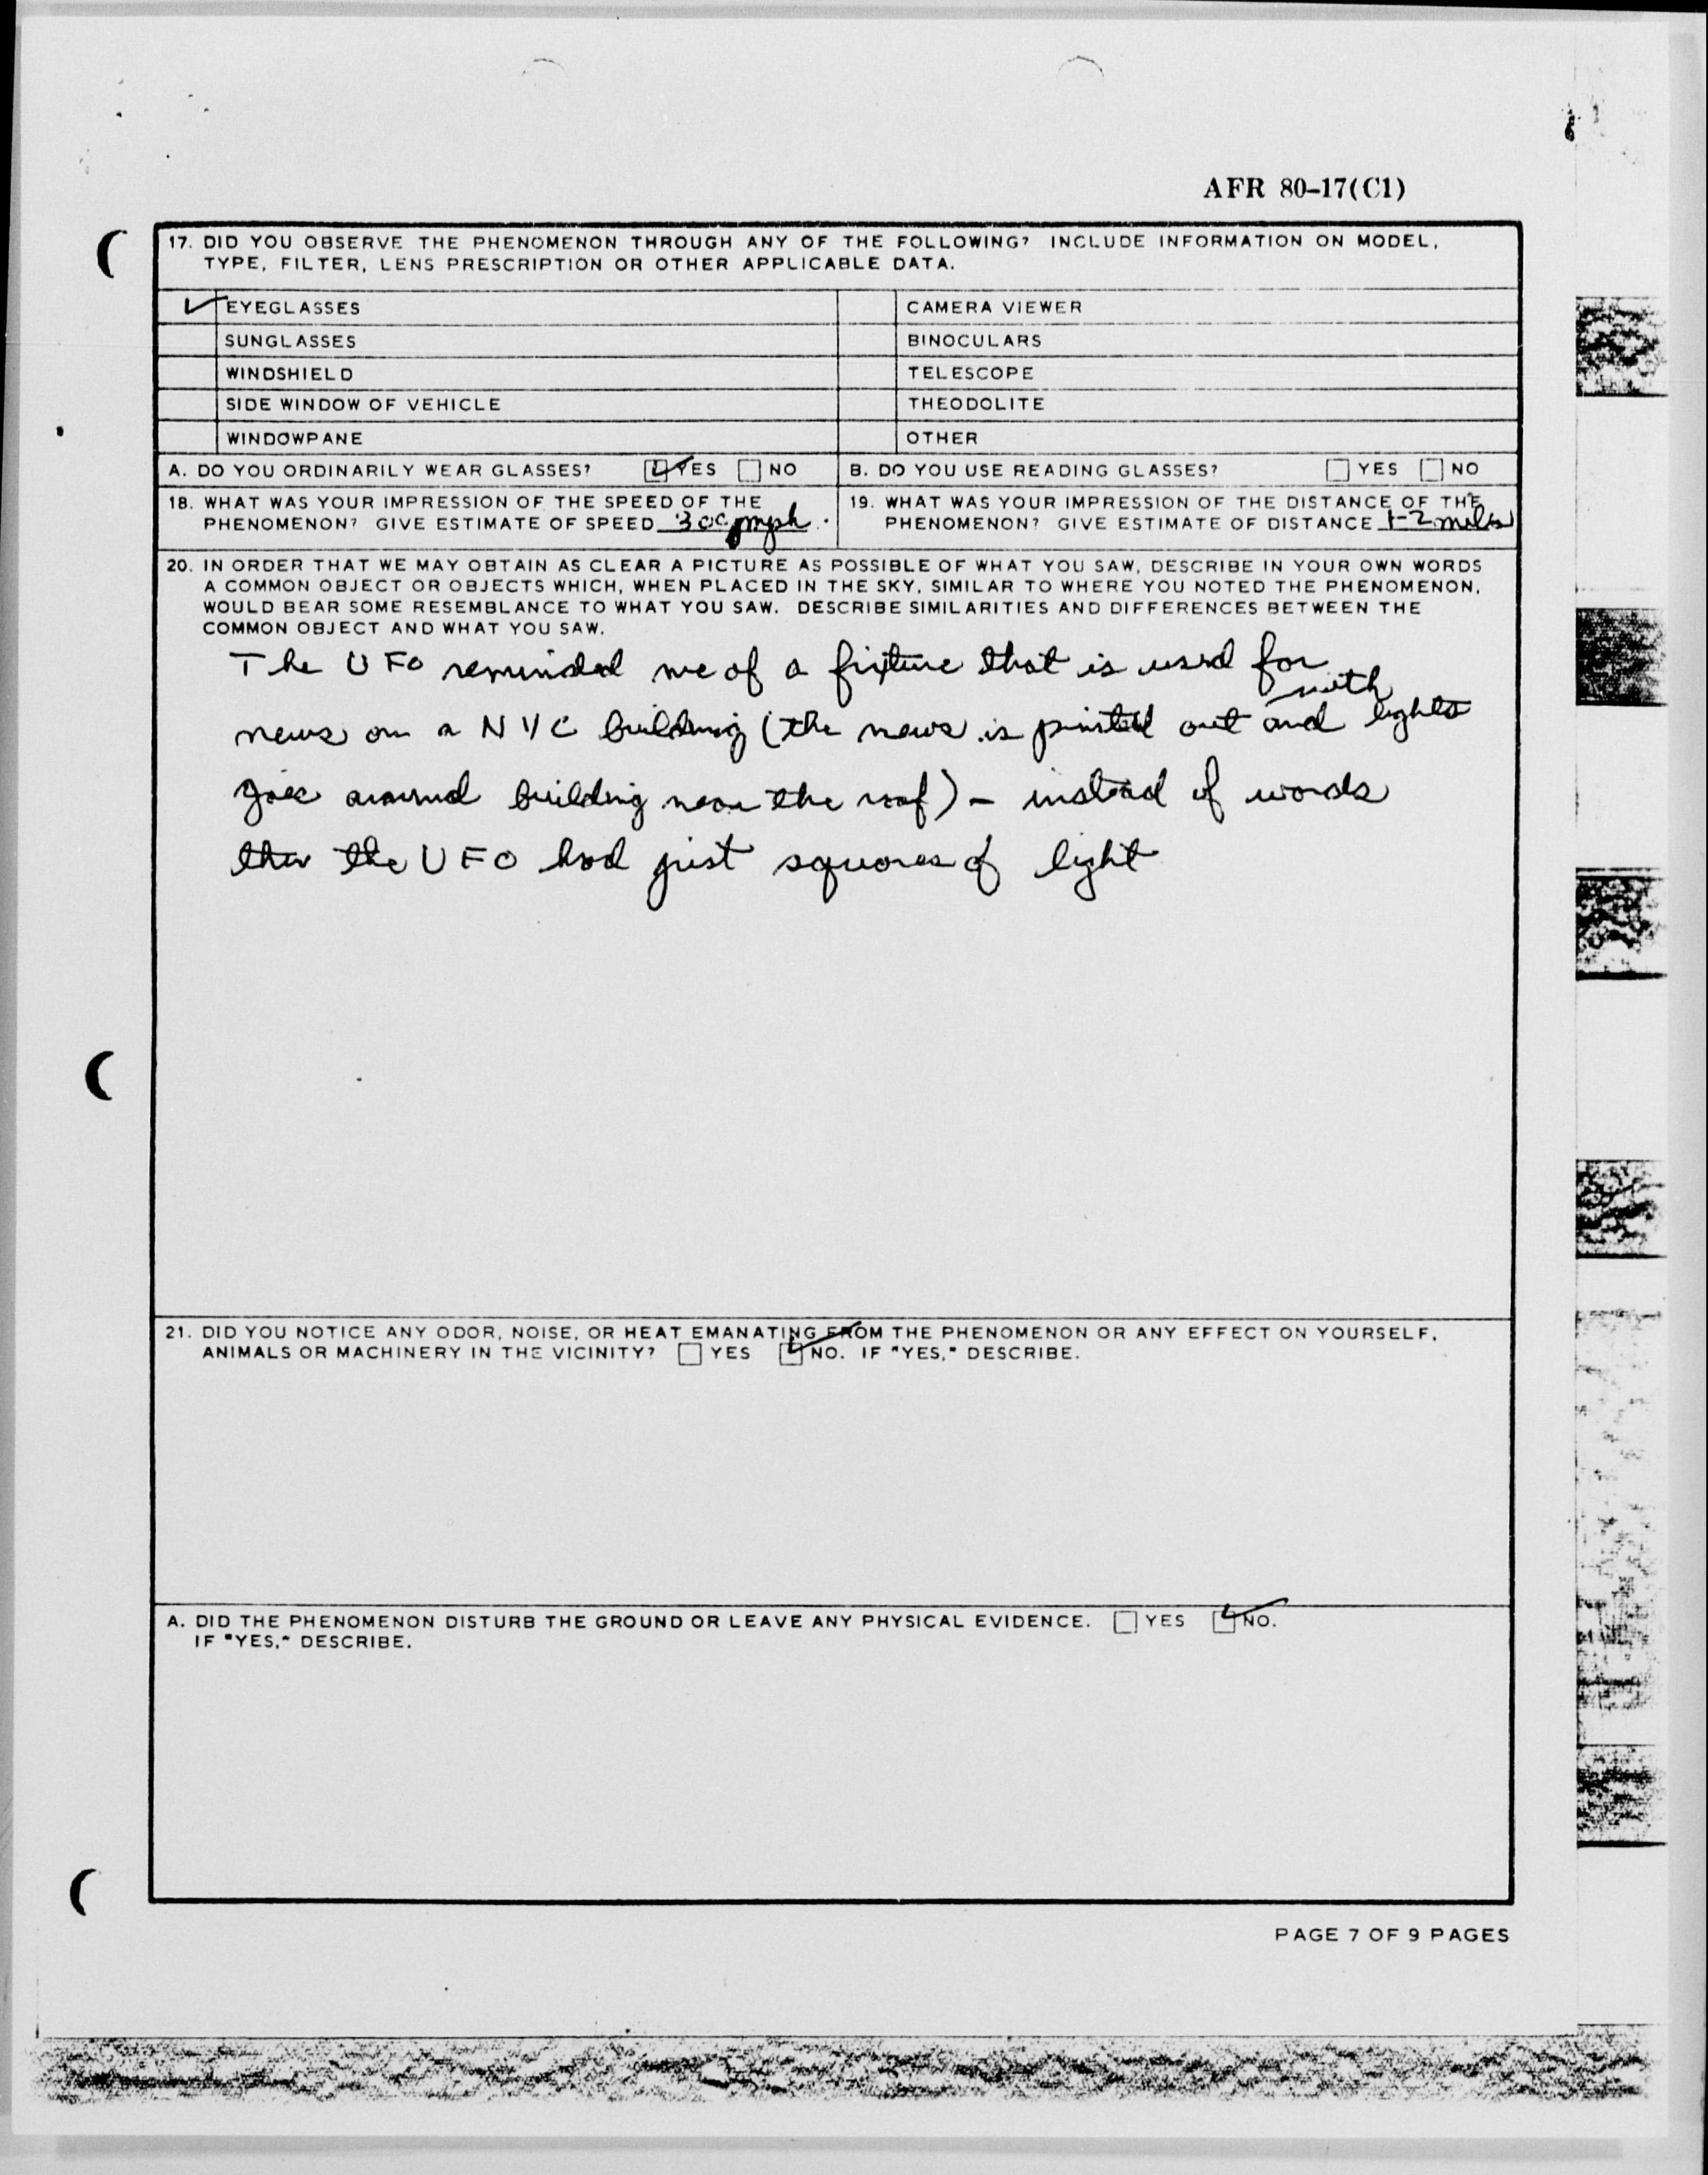 AFR 80-17(C1)
17. DID YOU OBSERVE THE PHENOMENON THROUGH ANY OF THE FOLLOWING? INCLUDE INFORMATION ON MODEL,
TYPE, FILTER, LENS PRESCRIPTION OR OTHER APPLICABLE DATA.
✓ EYEGLASSES CAMERA VIEWER
SUNGLASSES BINOCULARS
WINDSHIELD TELESCOPE
SIDE WINDOW OF VEHICLE THEODOLITE
WINDOWPANE OTHER
A. DO YOU ORDINARILY WEAR GLASSES? ☑ YES ☐ NO B. DO YOU USE READING GLASSES? ☐ YES ☐ NO
18. WHAT WAS YOUR IMPRESSION OF THE SPEED OF THE
PHENOMENON? GIVE ESTIMATE OF SPEED 300 mph.
19. WHAT WAS YOUR IMPRESSION OF THE DISTANCE OF THE
PHENOMENON? GIVE ESTIMATE OF DISTANCE 1-2 miles
20. IN ORDER THAT WE MAY OBTAIN AS CLEAR A PICTURE AS POSSIBLE OF WHAT YOU SAW, DESCRIBE IN YOUR OWN WORDS
A COMMON OBJECT OR OBJECTS WHICH, WHEN PLACED IN THE SKY, SIMILAR TO WHERE YOU NOTED THE PHENOMENON,
WOULD BEAR SOME RESEMBLANCE TO WHAT YOU SAW. DESCRIBE SIMILARITIES AND DIFFERENCES BETWEEN THE
COMMON OBJECT AND WHAT YOU SAW.
The UFO reminded me of a fixture that is used for
news on a NYC building (the news is printed out with lights and
goes around building near the roof) - instead of words
the UFO had just squares of light
21. DID YOU NOTICE ANY ODOR, NOISE, OR HEAT EMANATING FROM THE PHENOMENON OR ANY EFFECT ON YOURSELF,
ANIMALS OR MACHINERY IN THE VICINITY? ☐ YES ☑ NO. IF "YES," DESCRIBE.
A. DID THE PHENOMENON DISTURB THE GROUND OR LEAVE ANY PHYSICAL EVIDENCE. ☐ YES ☑ NO.
IF "YES," DESCRIBE.
PAGE 7 OF 9 PAGES